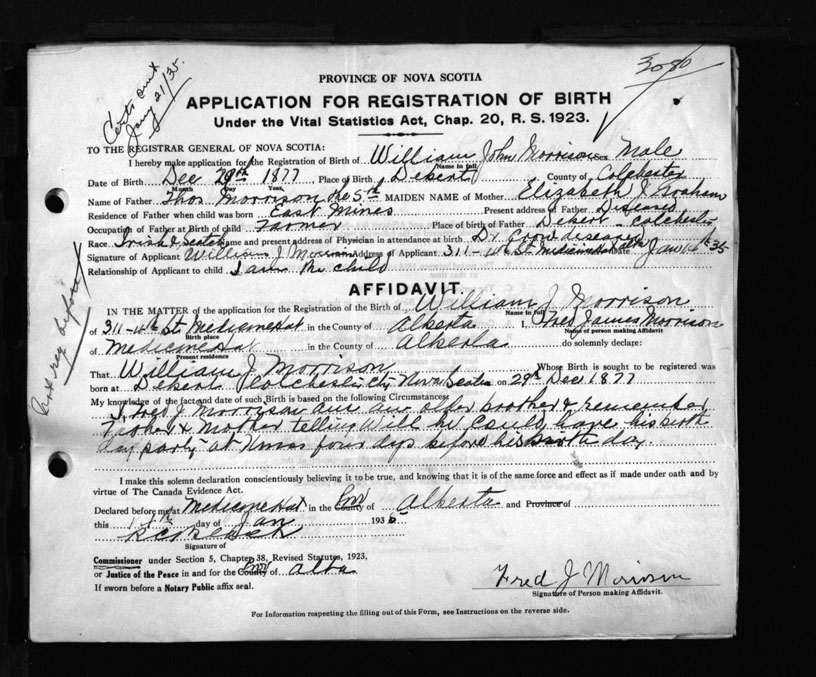 3080
Certs sent
Jany 21/35.
PROVINCE OF NOVA SCOTIA
APPLICATION FOR REGISTRATION OF BIRTH
Under the Vital Statistics Act, Chap. 20, R. S. 1923.
TO THE REGISTRAR GENERAL OF NOVA SCOTIA:
I hereby make application for the Registration of Birth of William John Morrison Male
Name in full
Date of Birth Dec 29th 1877 Place of Birth Debert County of Colchester
Month Day Year
Name of Father Thos. Morrison the 5th MAIDEN NAME of Mother Elizabeth J
Residence of Father when child was born East Mines Present address of Father Diseased
Occupation of Father at Birth of child Farmer Place of birth of Father Debert Colchester
Race Irish & Scotch Name and present address of Physician in attendance at birth Dr Crow diseased
Signature of Applicant William J Morrison Address of Applicant 311-4th St Medicine Hat Date Jan 35
Relationship of Applicant to child I am the child
AFFIDAVIT.
IN THE MATTER of the application for the Registration of the Birth of William J. Morrison
Name in full
of 311-4th St Medicine Hat in the County of Alberta I, Fred James Morrison
Birth place Name of person making Affidavit
of Medicine Hat in the County of Alberta do solemnly declare:
Present residence
That William J Morrison Whose Birth is sought to be registered was
born at Debert Colchester Cty Nova Scotia on 29th Dec 1877
My knowledge of the fact and date of such Birth is based on the following Circumstances:
I, Fred J. Morrison am an older brother & remember
Father & Mother telling Will he could have his birth
day party at Xmas four days before his birth day.
I make this solemn declaration conscientiously believing it to be true, and knowing that it is of the same force and effect as if made under oath and by
virtue of The Canada Evidence Act.
Declared before me at Medicine Hat in the Prov County of Alberta and Province of
this day of Jan 1935
Signature of
Commissioner under Section 5, Chapter 38, Revised Statutes, 1923,
or Justice of the Peace in and for the Prov County of Alba
If sworn before a Notary Public affix seal.
Fred J Morrison
Signature of Person making Affidavit.
For Information respecting the filling out of this Form, see Instructions on the reverse side.
Not reg before